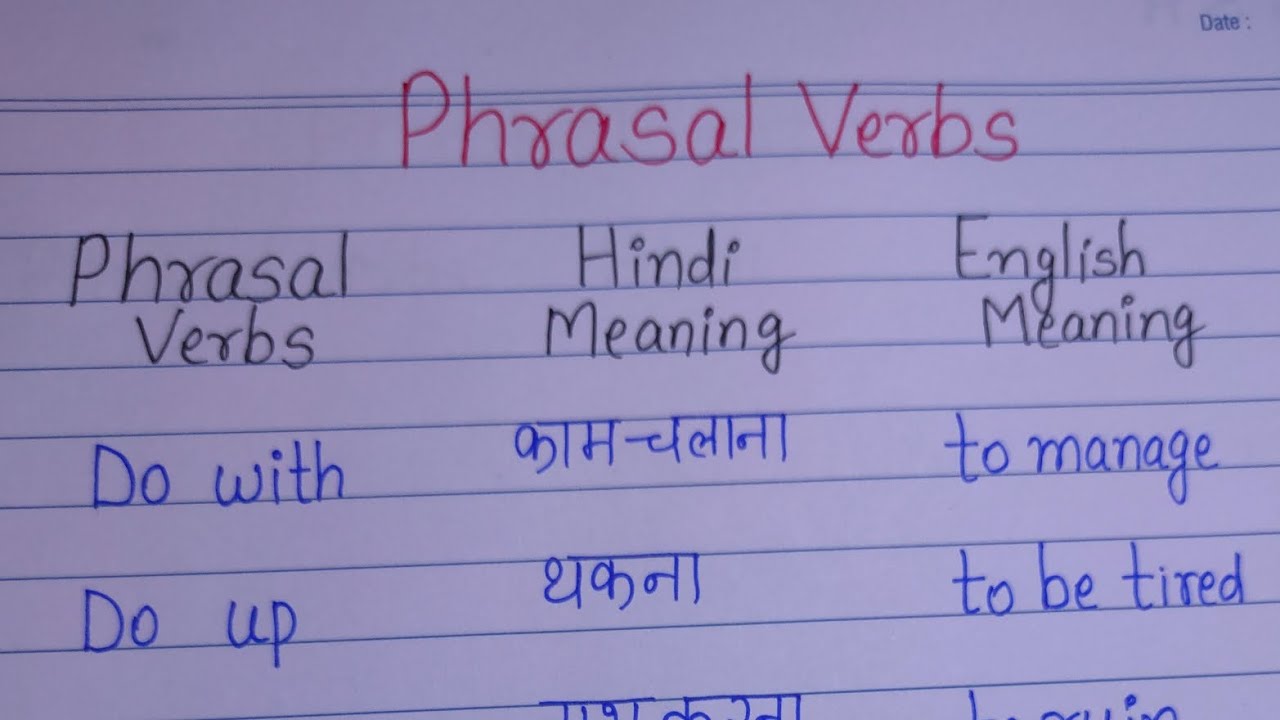 Date :
Phrasal Verbs
Phrasal Hindi English
Verbs Meaning Meaning
Do with काम-चलाना to manage
Do up थकना to be tired
करना